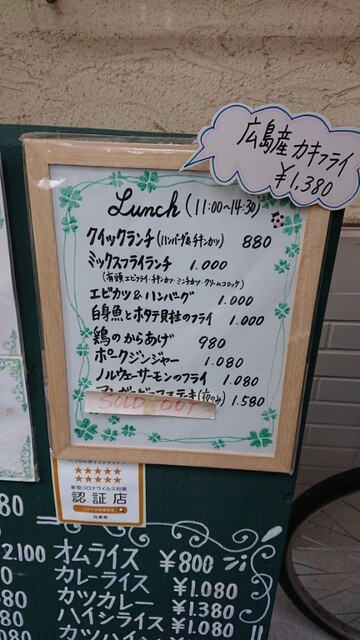 広島産 カキフライ
¥1,380
Lunch (11:00~14:30)
クイックランチ (ハンバーグ&チキンカツ) 880
ミックスフライランチ 1.000
(有頭エビフライ・チキンカツ・ミンチカツ・クリームコロッケ)
エビカツ&ハンバーグ 1.000
白身魚とホタテ貝柱のフライ 1.000
鶏のからあげ 980
ポークジンジャー 1.080
ノルウェーサーモンのフライ 1.080
ステキ(夜のみ) 1.580
SOLD OUT
新型コロナウイルス対策
認証店
兵庫県
2.100 オムライス ¥800
カレーライス ¥1.080
カツカレー ¥1.380
ハイシライス ¥1.080
カツハイシ